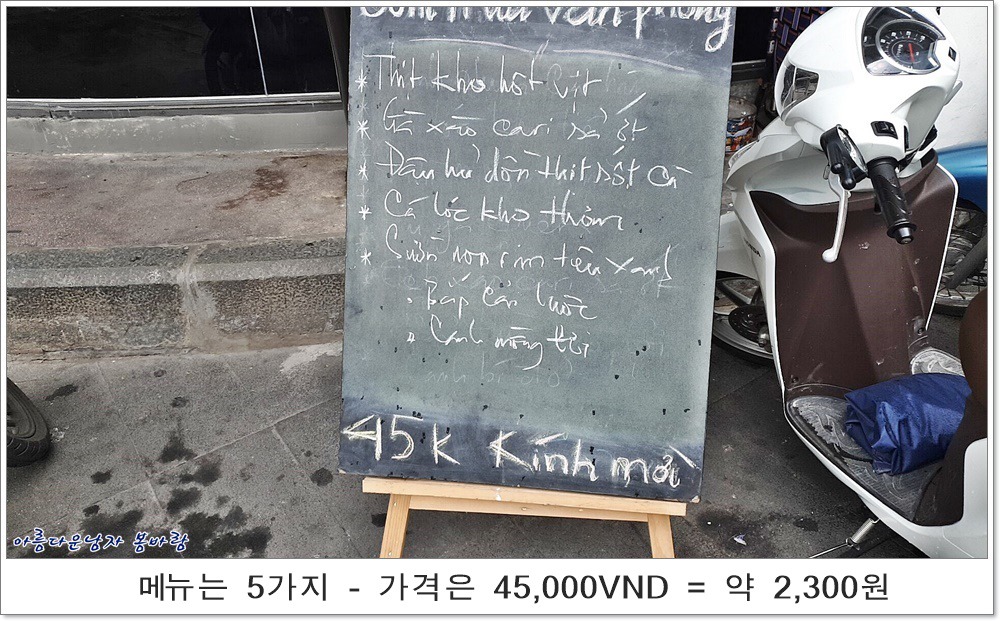 Cơm trưa văn phòng
* Thịt kho hột vịt
* Gà xào cari sả ớt
* Đậu hủ dồn thịt sốt cà
* Cá lóc kho thơm
* Sườn non rim tiêu xanh
• Bắp cải luộc
• Canh mồng tơi
45k Kính mời
아름다운남자 봄바람
메뉴는 5가지 - 가격은 45,000VND = 약 2,300원